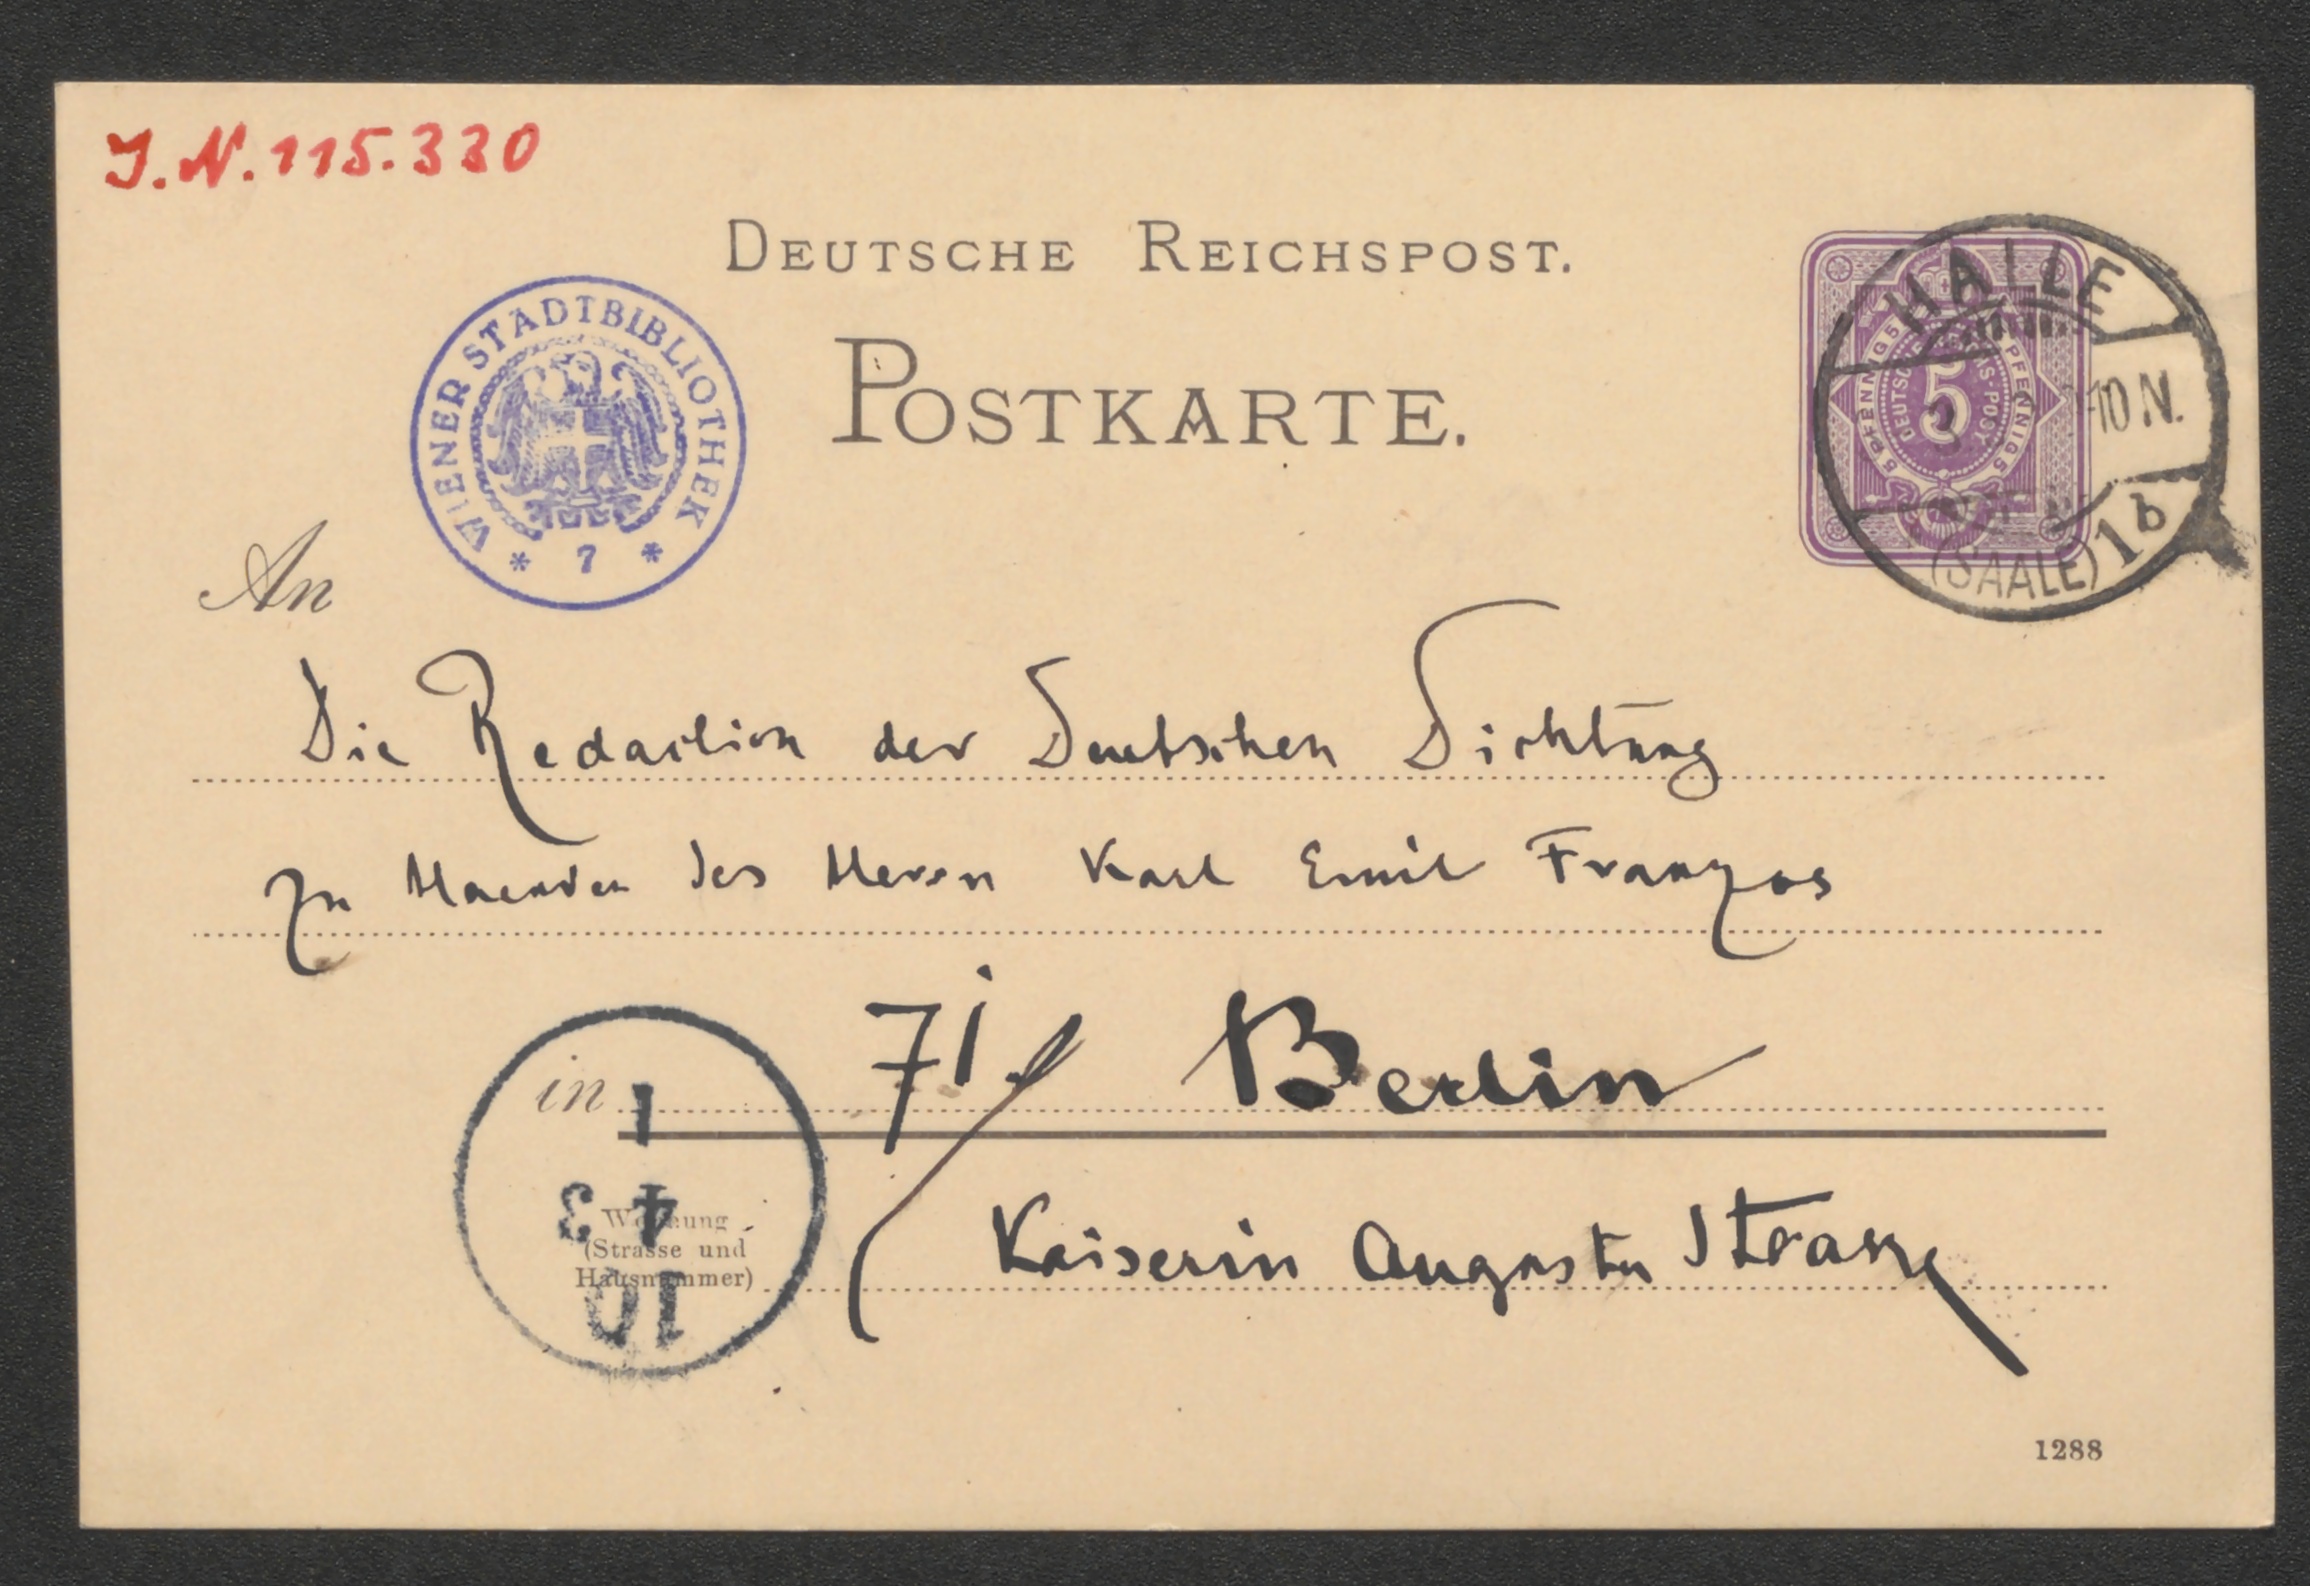 J.N. 115.330
DEUTSCHE REICHSPOST.
POSTKARTE.
WIENER STADTBIBLIOTHEK
* 7 *
5 PFENNIG 5 PFENNIG 5
DEUTSCHE REICHS-POST
5
HALLE
3 -10 N.
(SAALE) 1 b
An
Die Redaction der Deutschen Dichtung
zu Haenden des Herrn Karl Emil Franzos
in Berlin
71
1
4 3
10
Wohnung
(Strasse und
Hausnummer)
Kaiserin Augusta Strasse
1288